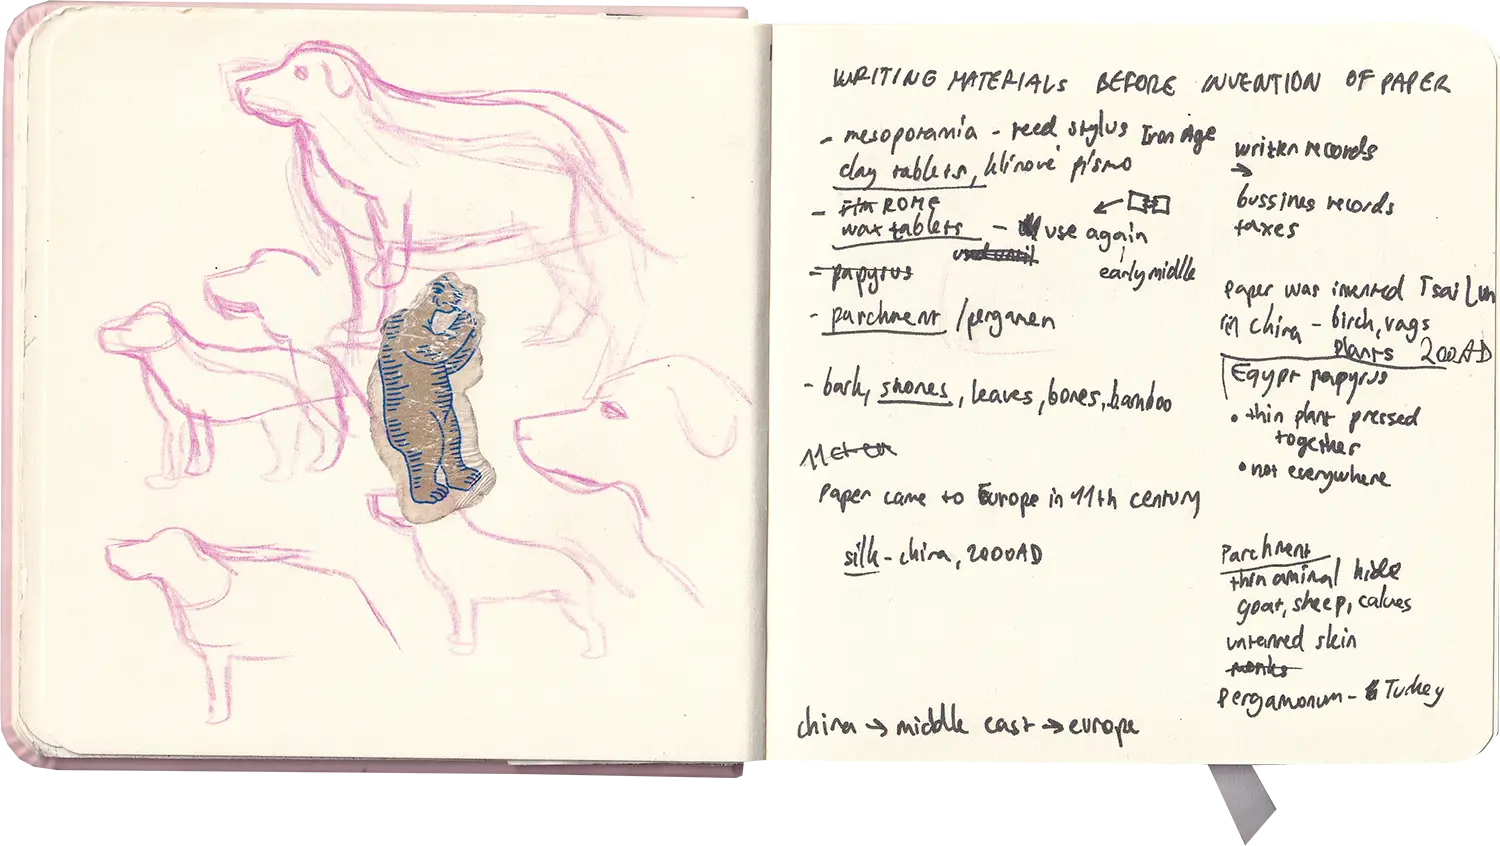 WRITING MATERIALS BEFORE INVENTION OF PAPER
- mesoporamia - reed stylus Iron Age
clay tablets, klínové písmo
- ROME
wax tablets - use again
early middle
- papyrus
- parchment / pergamen
- bark, stones, leaves, bones, bamboo
Paper came to Europe in 11th century
silk - china, 2000AD
china → middle east → europe
written records
→
bussines records
taxes
Paper was invented Tsai Lun
in China - birch, rags
plants 200AD
Egypt papyrus
• thin plant pressed
together
• not everywhere
Parchment
thin animal hide
goat, sheep, calves
untanned skin
monks
Pergamonum - Turkey